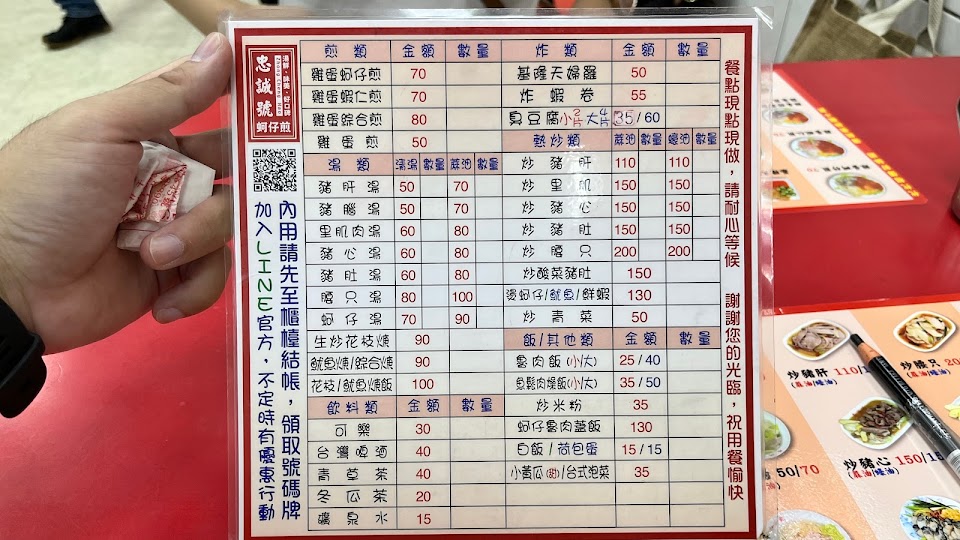 忠誠號
海鮮、味美、好口碑
蚵仔煎
內用請先至櫃檯結帳，領取號碼牌
加入LINE官方，不定時有優惠行動
煎類 金額 數量
雞蛋蚵仔煎 70
雞蛋蝦仁煎 70
雞蛋綜合煎 80
雞蛋煎 50
湯類 清湯 數量 蔴油 數量
豬肝湯 50 70
豬腦湯 50 70
里肌肉湯 60 80
豬心湯 60 80
豬肚湯 60 80
腰只湯 80 100
蚵仔湯 70 90
生炒花枝焿 90
魷魚焿/綜合焿 90
花枝/魷魚焿飯 100
飲料類 金額 數量
可樂 30
台灣啤酒 40
青草茶 40
冬瓜茶 20
礦泉水 15
炸類 金額 數量
基隆天婦羅 50
炸蝦卷 55
臭豆腐小2片大4片 35/60
熱炒類 蔴油 數量 蠔油 數量
炒豬肝 110 110
炒里肌 150 150
炒豬心 150 150
炒豬肚 150 150
炒腰只 200 200
炒酸菜豬肚 150
燙蚵仔/魷魚/鮮蝦 130
炒青菜 50
飯/其他類 金額 數量
魯肉飯(小/大) 25/40
魚鬆肉燥飯(小/大) 35/50
炒米粉 35
蚵仔魯肉蓋飯 130
白飯/荷包蛋 15/15
小黃瓜(甜)/台式泡菜 35
餐點現點現做，請耐心等候 謝謝您的光臨，祝用餐愉快
炒豬肝 110/1
(麻油/蠔油)
炒腰只 20
(麻油/蠔油)
50/70
炒豬心 150/15
(麻油/蠔油)